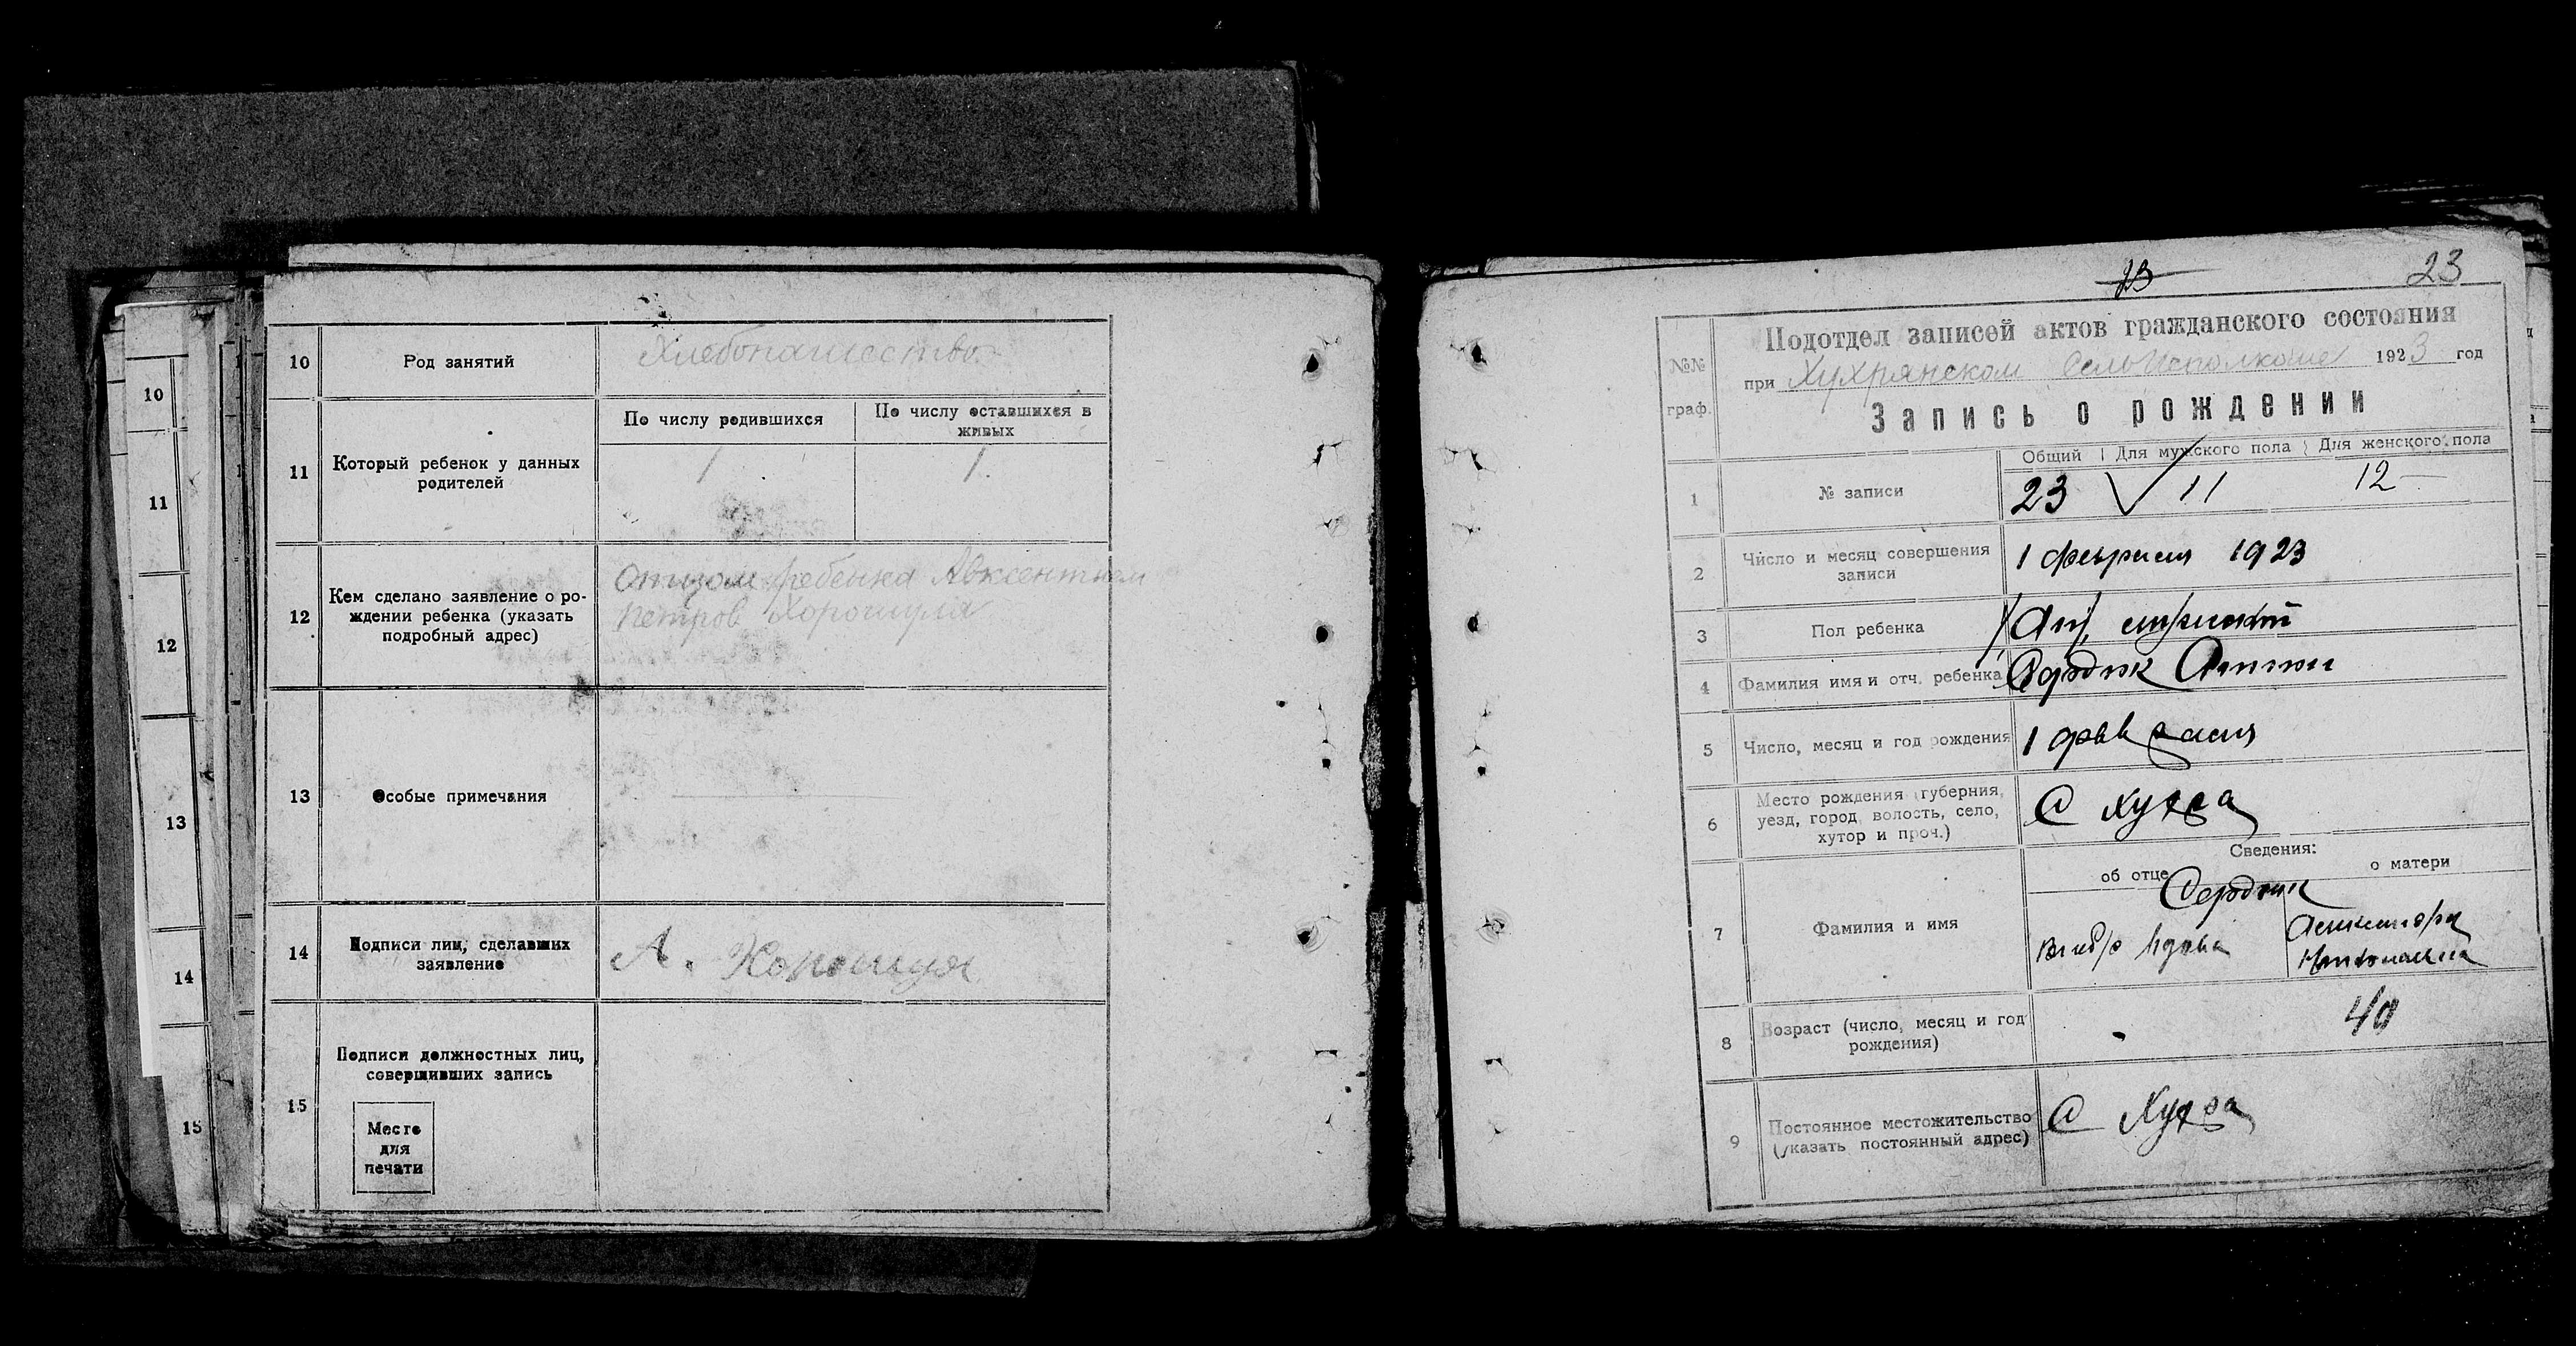 10
11
12
13
14
15
10 Род занятий Хлебопашество
11 Который ребенок у данных родителей
По числу родившихся
По числу оставшихся в живых
1 1.
12 Кем сделано заявление о ро-
ждении ребенка (указать
подробный адрес)
Отцом ребенка Авксентием
Петров Хорошуля
13 Особые примечания
14 Подписи лиц, сделавших
заявление
А. Хорошуля
15 Подписи должностных лиц,
совершивших запись
Место
для
печати
23 23
№№
граф.
Подотдел записей актов гражданского состояния
при Хухрянском Сельисполкоме 1923 год
Запись о рождении
Общий Для мужского пола Для женского пола
1 № записи 23 11 12
2 Число и месяц совершения
записи
1 февраля 1923
3 Пол ребенка
4 Фамилия имя и отч. ребенка Сердюк
5 Число, месяц и год рождения 1 февраля
6 Место рождения (губерния,
уезд, город, волость, село,
хутор и проч.)
С Хухра
Сведения:
об отце о матери
7 Фамилия и имя
Сердюк
Александра
Николаевна
8 Возраст (число, месяц и год
рождения)
40
9 Постоянное местожительство
(указать постоянный адрес)
С Хухра